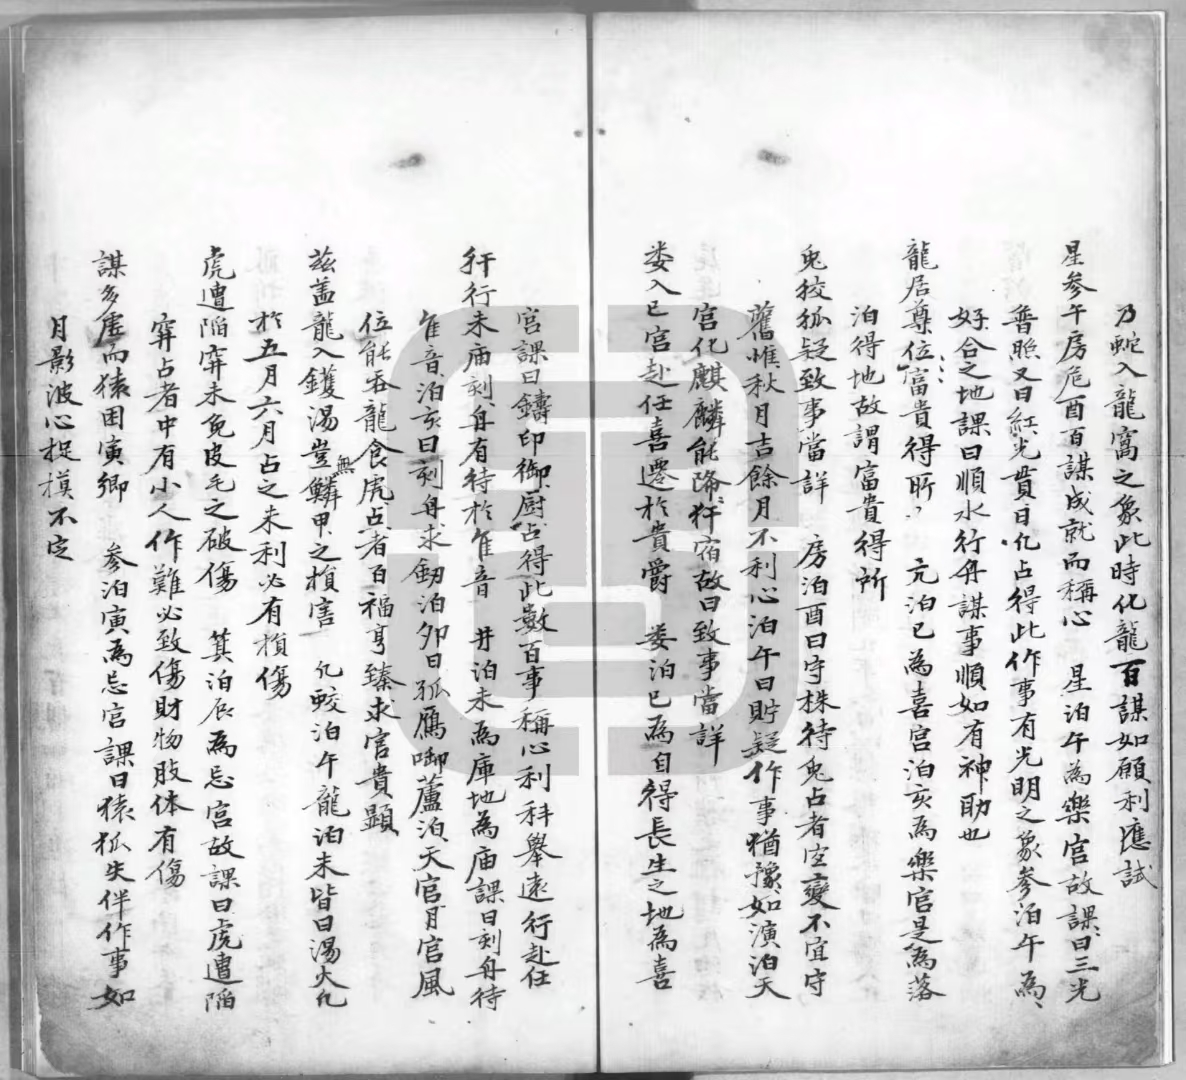 乃蛇入龍窩之象此時化龍百謀如願利應試
星參午房危酉百謀成就而稱心　星泊午為樂宮故課曰三光
普照又曰紅光貫日化占得此作事有光明之象參泊午為
好合之地課曰順水行舟謀事順如有神助也
龍居尊位富貴得所　亢泊巳為喜宮泊亥為樂宮是為落
泊得地故謂富貴得所
兎狡狐疑致事當詳　房泊酉曰守株待兎占者宜變不宜守
舊惟秋月吉餘月不利心泊午曰貯疑作事猶豫如演泊天
宮化麒麟能降犴宿故曰致事當詳
娄入巳宮赴任喜遷於貴爵　娄泊巳為自得長生之地為喜
宮課曰鑄印御厨占得此數百事稱心利科舉遠行赴任
犴行未庙刻舟有待於隹音　井泊未為庫地為庙課曰刻舟待
隹音泊亥曰刻舟求劒泊夘曰孤鴈啣蘆泊天官月宮風
位能吞龍食虎占者百福亨臻求官貴顯
茲盖龍入鑊湯豈無鱗甲之損害　凡蛟泊午龍泊未皆曰湯火凡
於五月六月占之未利必有損傷
虎遭陷穽未免皮毛之破傷　箕泊辰為忌宮故課曰虎遭陷
穽占者中有小人作難必致傷財物肢体有傷
謀多虚而猿困寅鄉　參泊寅為忌宮課曰猿狐失伴作事如
月影波心捉摸不定